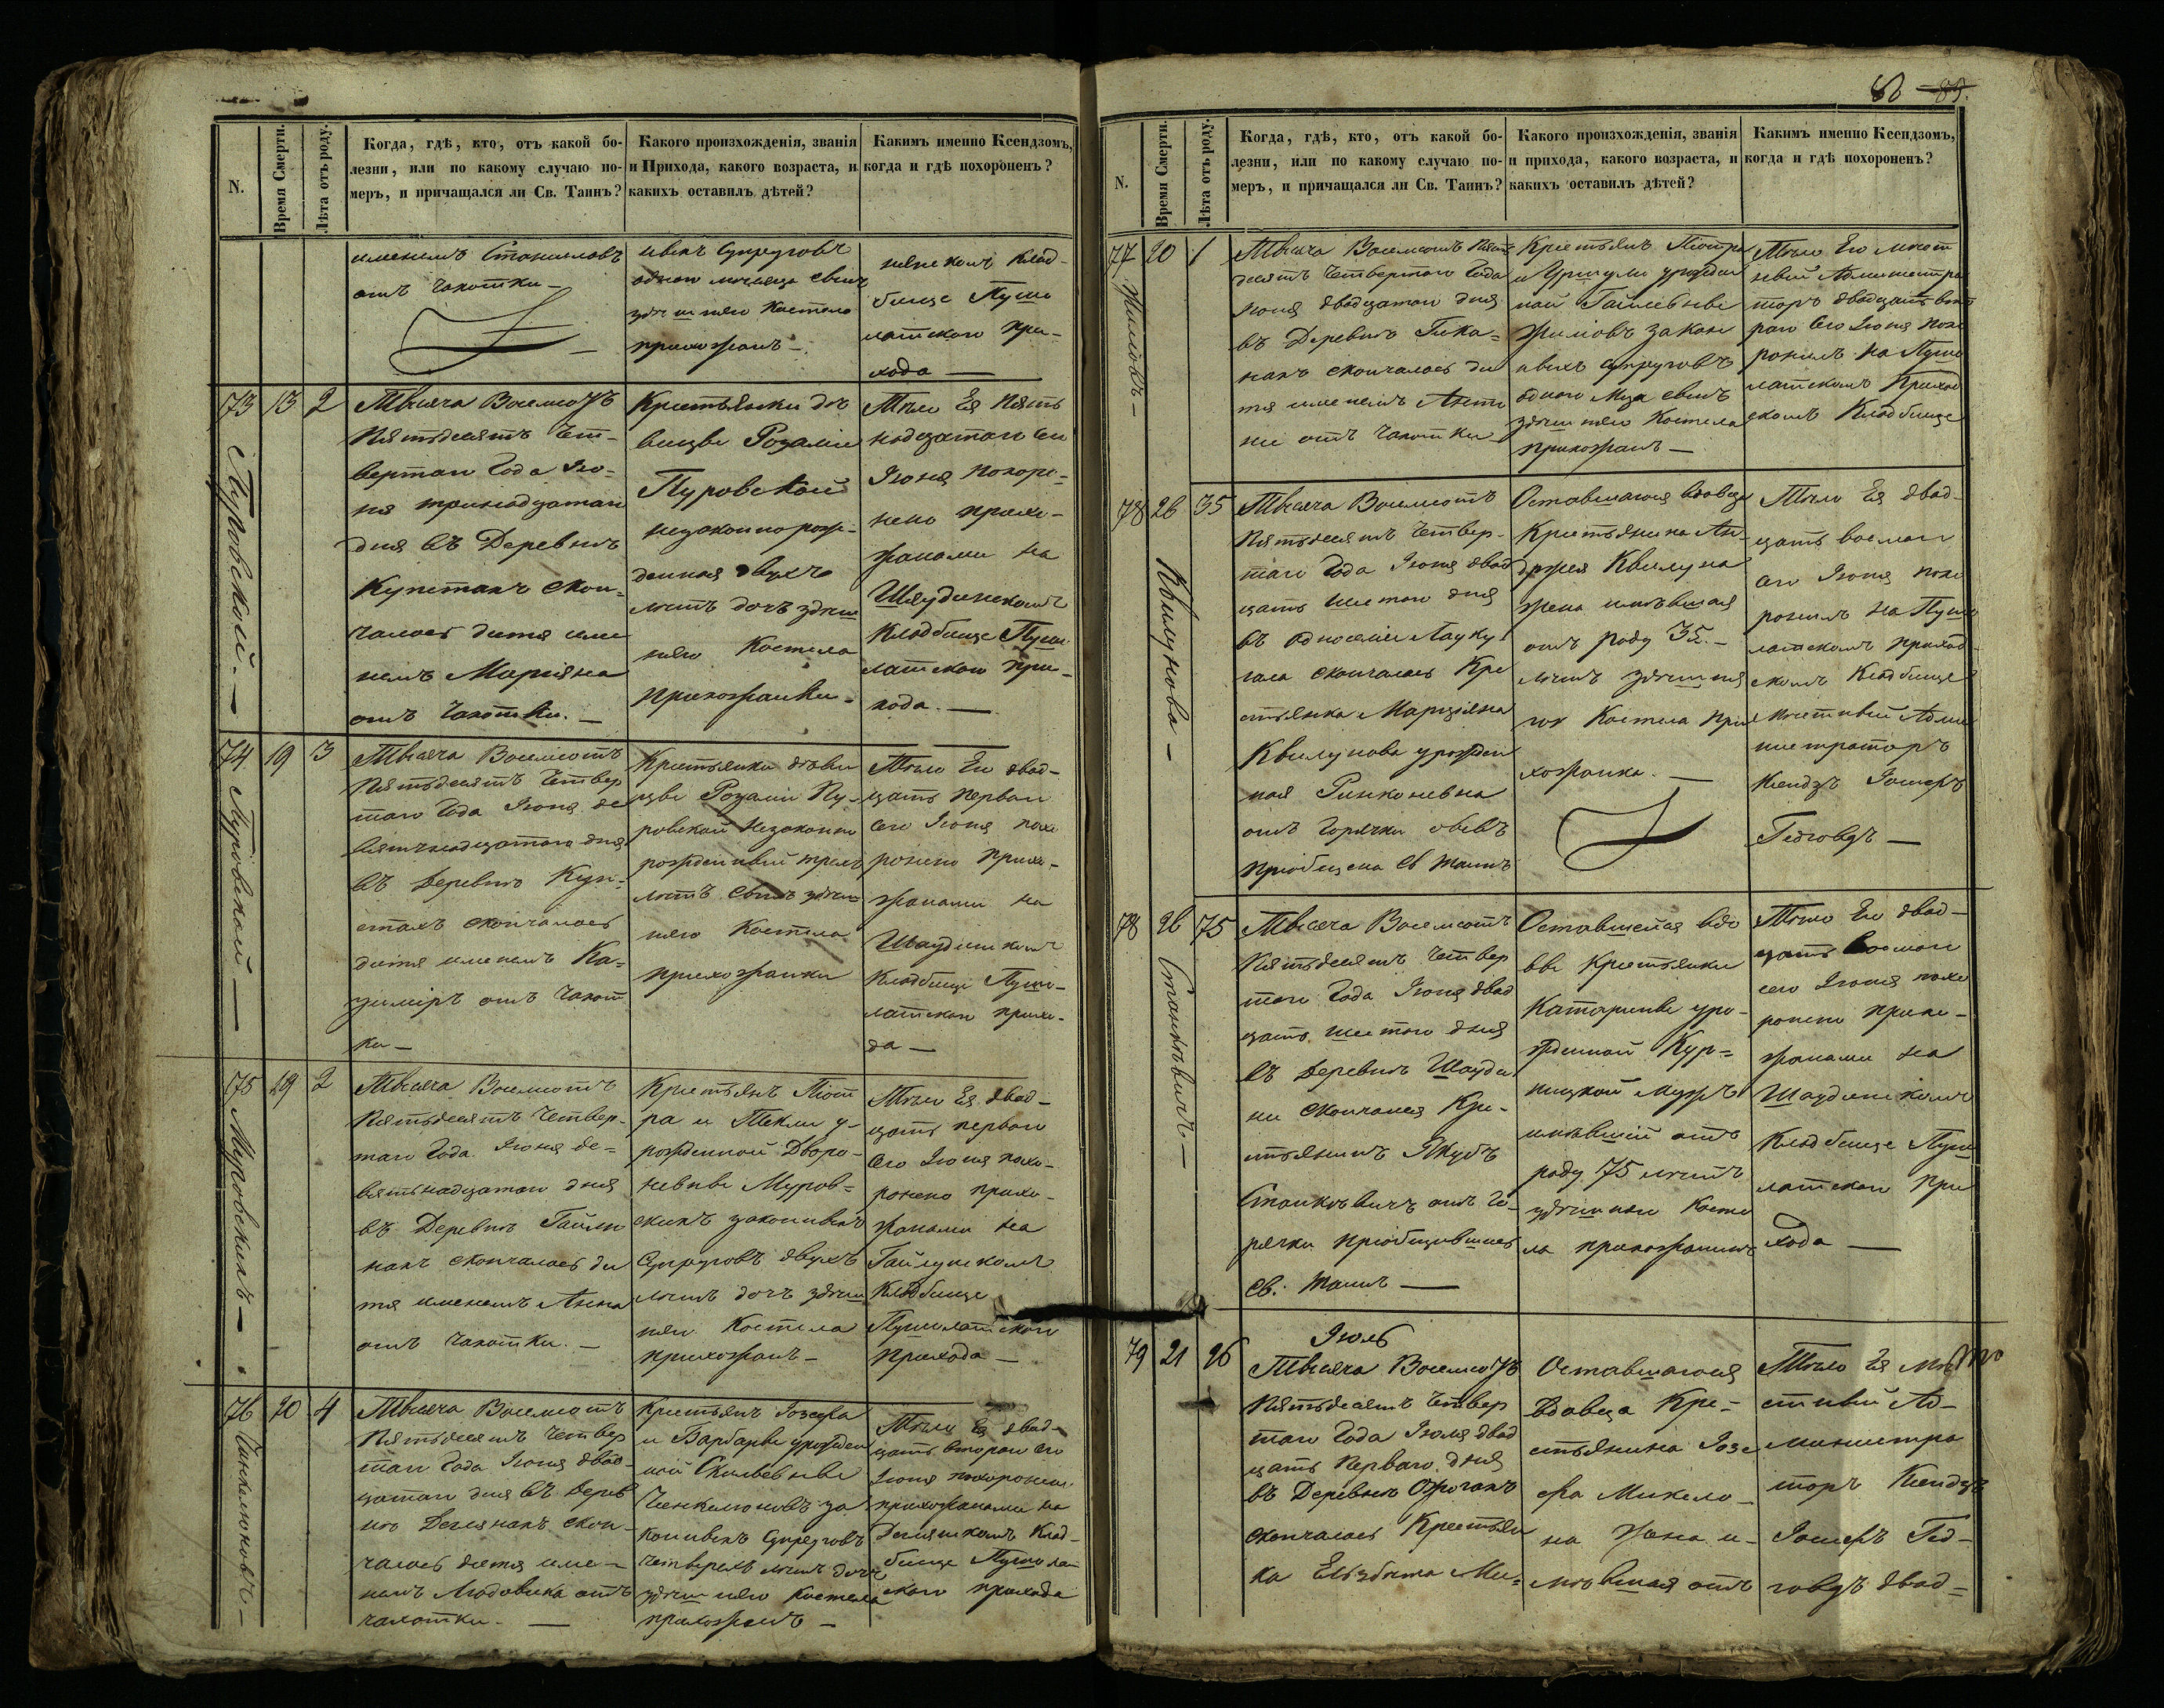 N.
Время Смерти.
Лѣта отъ роду.
Когда, гдѣ, кто, отъ какой бо-
лезни, или по какому случаю по-
меръ, и причащался ли Св. Таинъ?
Какого произхожденія, званія
и Прихода, какого возраста, и
какихъ оставилъ дѣтей?
Какимъ именно Ксендзомъ,
когда и гдѣ похороненъ?
именемъ Станиславъ
отъ чахотки —
ивыхъ Супруговъ
одного месяца сынъ
здѣшняго Костела
прихожанъ —
клад-
бище Пуша
латскаго при-
хода —
73
13
2
Пуровской. —
Тысяча Восемсотъ
Пятьдесятъ Чет-
вертаго Года Ію-
ня тринадцатаго
дня въ Деревнѣ
скон-
чалось дитя име
немъ Маріяна
отъ Чахотки. —
Крестьянки дѣ
вицы Розаліи
Пуровской
незаконнорож-
денная двухъ
лѣтъ дочь здѣш
няго Костела
прихожанки —
Тѣло Ея пять
надцатаго сего
Іюня похоро-
нено прихо-
жанами на
Шяудинскомъ
Кладбище Пуша
латскаго при-
хода. —
74
19
3
Пуровской —
Тысяча Восемсотъ
Пятьдесятъ Четвер
таго Года Іюня де
вятьнадцатаго дня
въ Деревнѣ
скончалось
дитя именемъ Ка-
зимиръ отъ Чахот
ки —
Крестьянки дѣви
цы Розаліи Пу-
ровской Незаконно
рожденный трехъ
лѣтъ сынъ здѣш
няго Костела
прихожанки
Тѣло Его двад-
цать перваго
сего Іюня похо
ронено прихо-
жанами на
Шаудинскомъ
Кладбище Пуша-
латскаго прихо-
да —
75
19
2
Муровскихъ —
Тысяча Восемсотъ
Пятьдесятъ Четвер-
таго Года Іюня де-
вятьнадцатаго дня
въ Деревнѣ Гайлю
нахъ скончалось ди
тя именемъ Анна
отъ чахотки. —
Крестьянъ Піот
ра и Текли у-
рожденной Дворо-
невны Муров-
скихъ законныхъ
Супруговъ двухъ
лѣтъ дочь здѣш
няго Костела
прихожанъ —
Тѣло Ея двад-
цать перваго
сего Іюня похо-
ронено прихо-
жанами на
Гайлунскомъ
Кладбище
Пушалатскаго
Прихода —
76
20
4
Тысяча Восемсотъ
Пятьдесятъ Четвер
таго Года Іюня двад
цатаго дня въ Дерев
нѣ скон-
чалось дитя име-
немъ Людовика отъ
чахотки. —
Крестьянъ Іозефа
и Барбары урожден
ной
за
конныхъ Супруговъ
Четырехъ лѣтъ дочь
здѣшняго Костела
прихожанъ —
Тѣло Ея двад-
цать втораго сего
Іюня похоронено
прихожанами на
Клад-
бище Пушалат
скаго прихода
89.
N.
Время Смерти.
Лѣта отъ роду.
Когда, гдѣ, кто, отъ какой бо-
лезни, или по какому случаю по-
меръ, и причащался ли Св. Таинъ?
Какого произхожденія, званія
и прихода, какого возраста, и
какихъ оставилъ дѣтей?
Какимъ именно Ксендзомъ,
когда и гдѣ похороненъ?
77
20
1
Тысяча Восемсотъ Пять
десятъ Четвертаго Года
Іюня двадцатаго дня
въ Деревнѣ
скончалось ди
тя именемъ Анто
ній отъ Чахотки
Крестьянъ Піотра
и Уршули урожден
ной
закон
ныхъ супруговъ
одного Мца сынъ
здѣшняго Костела
прихожанъ —
Тѣло Его мѣст
ный Администра
торъ двадцать вто
раго сего Іюня похо
ронилъ на Пуша
латскомъ Приход
скомъ Кладбище
78
26
35
Квилунова —
Тысяча Восемсотъ
Пятьдесятъ Четвер-
таго Года Іюня двад
цать шестаго дня
въ Односеліи
скончалась Кре
стьянка Марціяна
Квилунова урожден
ная Ринконевна
отъ Горячки бывъ
пріобщена св Таинъ
Оставшагося вдовца
Крестьянина Ан-
држея Квилуна
жена имѣвшая
отъ роду 35.-
лѣтъ здѣшня
го Костела при
хожанка. —
Тѣло Ея двад-
цать восмаго
сего Іюня похо
ронилъ на Пуша
латскомъ приход-
скомъ Кладбище
мѣстный Адми
нистраторъ
Ксендзъ Іосифъ
Гедговдъ —
78
26
75
Станкѣвичъ —
Тысяча Восемсотъ
Пятьдесятъ Четвер
таго Года Іюня двад
цать шестаго дня
въ Деревнѣ Шауды
ни скончался Кре-
стьянинъ Якубъ
Станкѣвичъ отъ Го-
рячки пріобщившись
св. Таинъ —
Оставшейся вдо
вы Крестьянки
Катарины уро-
жденной Кур-
ницкой Мужъ
имѣвшій отъ
роду 75 лѣтъ
здѣшняго Косте
ла прихожанинъ
Тѣло Его двад-
цать восмаго
сего Іюня похо
ронено прихо-
жанами на
Шаудинскомъ
Кладбище Пуша
латскаго При
хода —
Іюль
79
21
26
Тысяча Восемсотъ
Пятьдесятъ Четвер
таго Года Іюля двад
цать Перваго дня
въ Деревнѣ
скончалась Крестьян
ка Ельзбѣта Ми-
Оставшагося
Вдовца Кре-
стьянина Іозе
фа Микело-
на Жена и-
мѣвшая отъ
Тѣло Ея мѣ
стный Ад-
министра
торъ Ксендзъ
Іосифъ Гед-
говдъ двад-